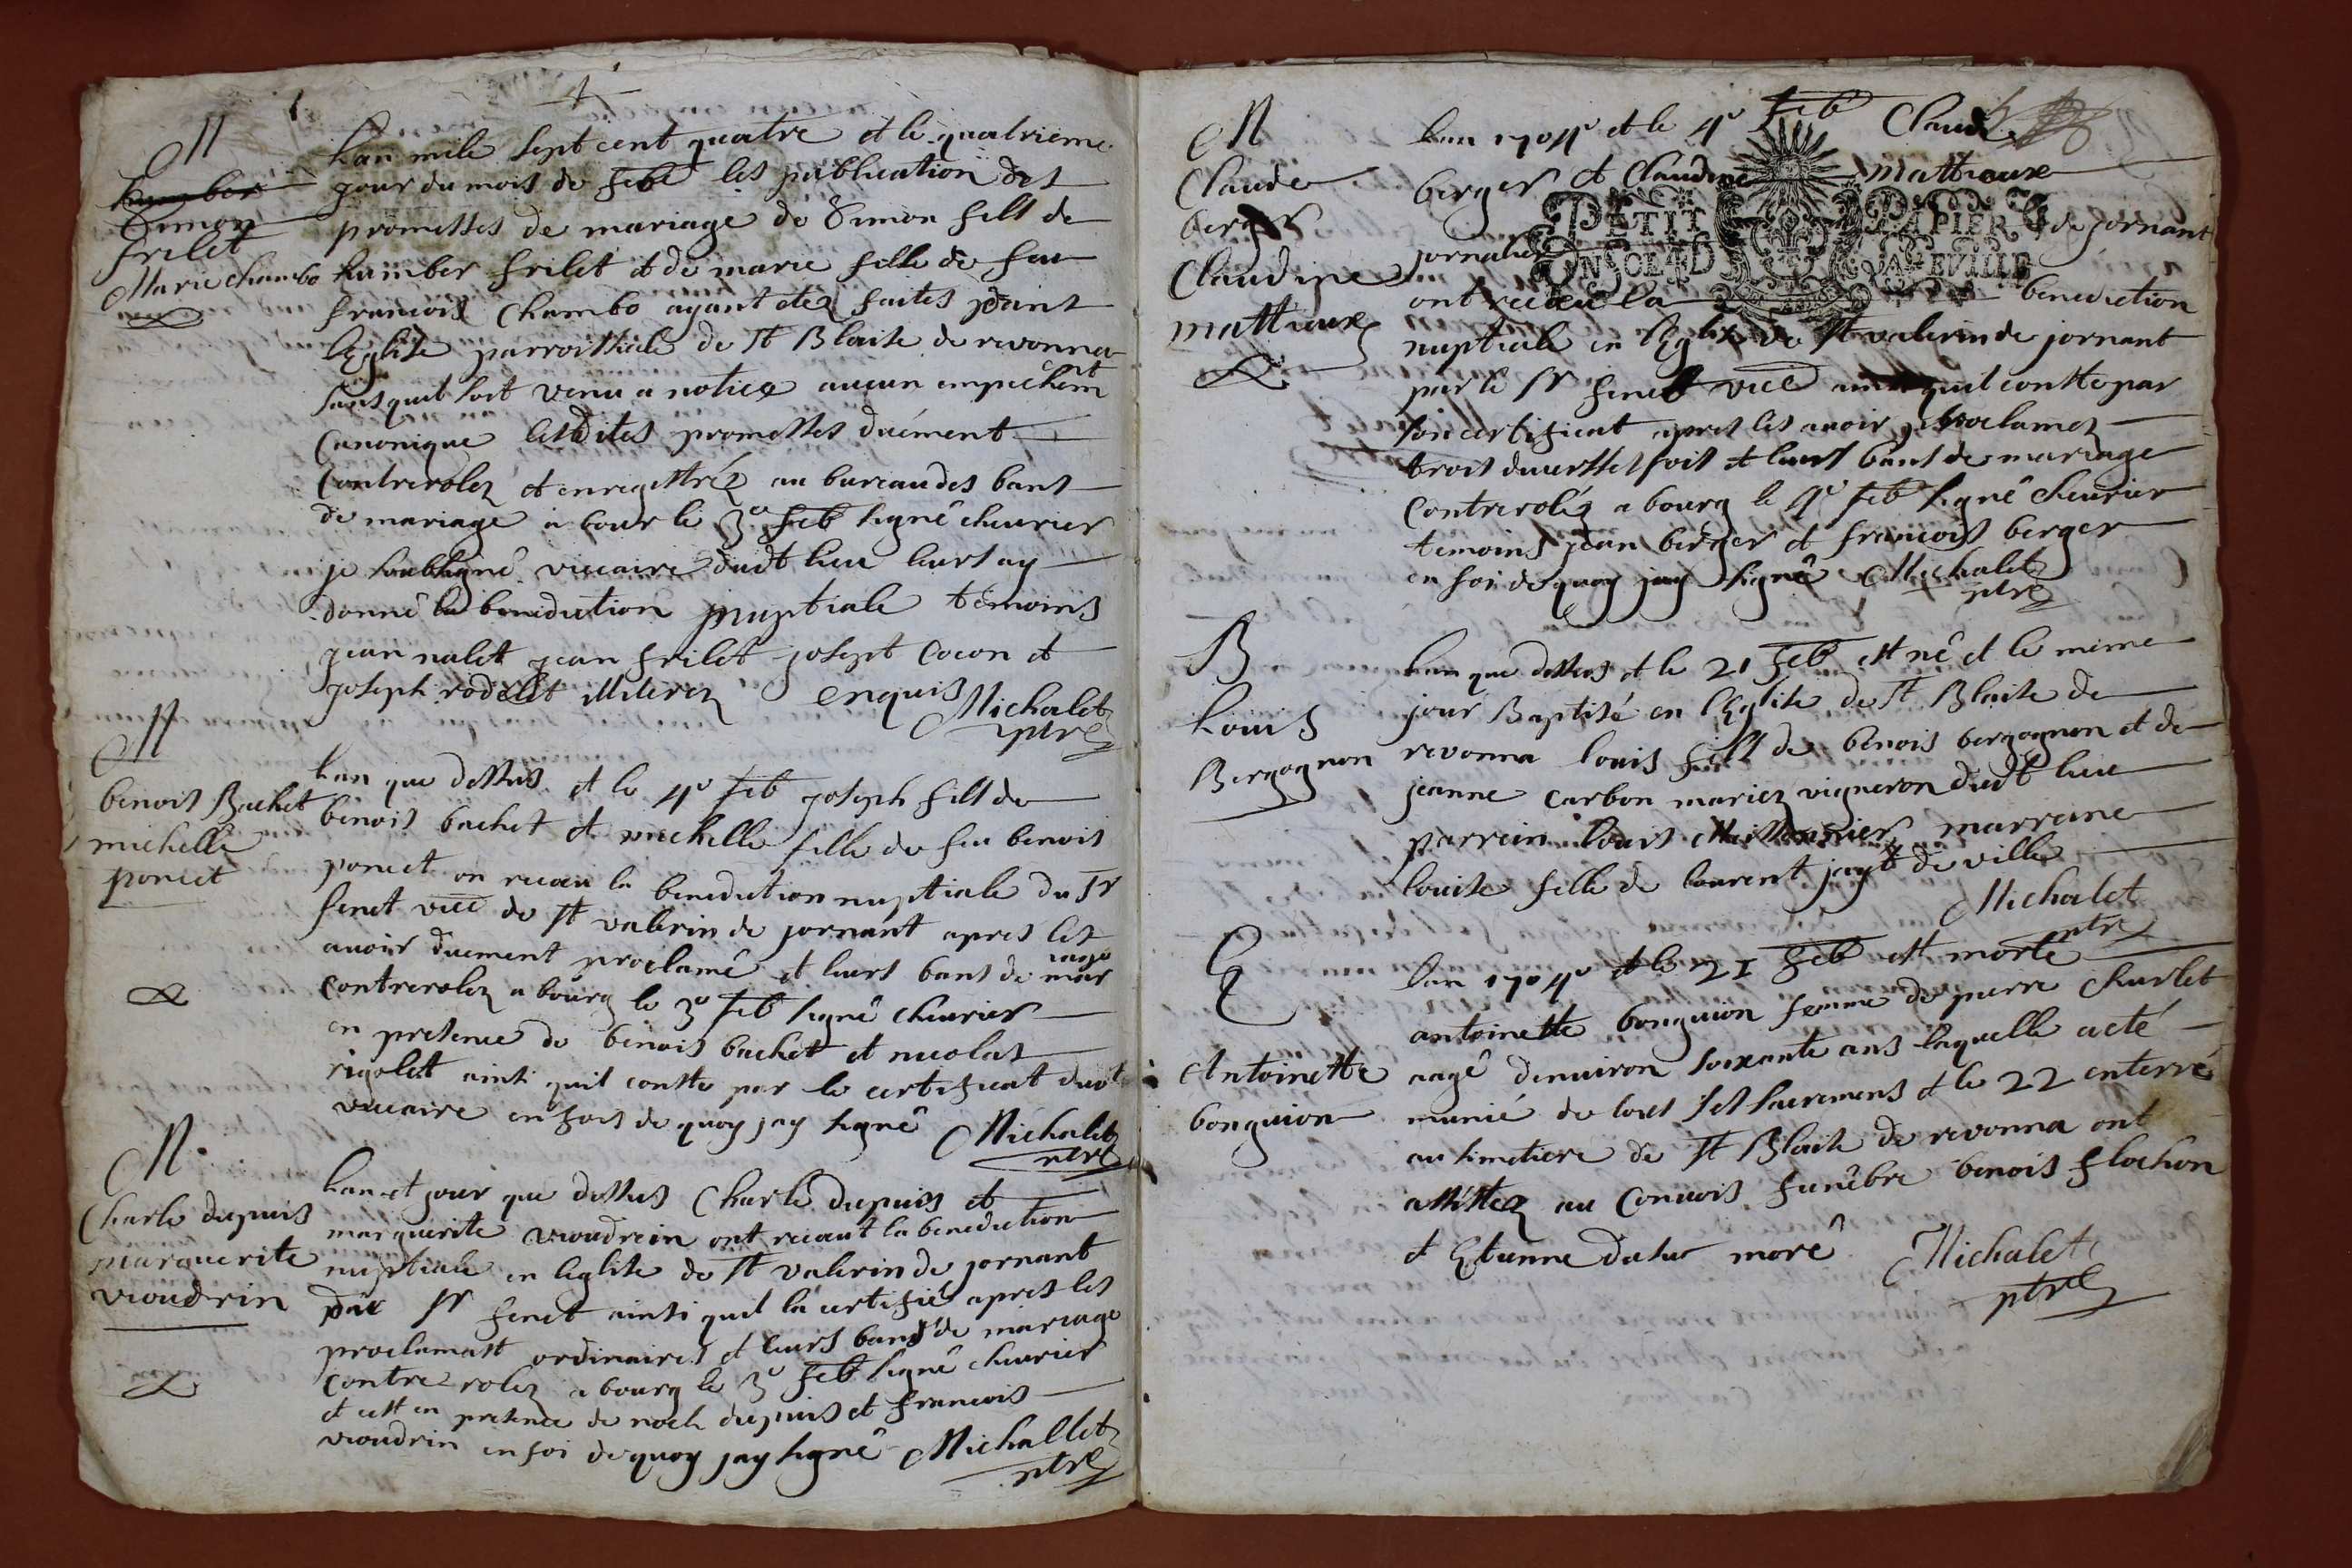 M
humber
Simon
frilet
Marie Chambo
Lan mile sept cent quatre et le quatrieme
jour du mois de feb les publication des
promesses de mariage de Simon fils de
humber frilet et de marie fille de feu
francois Chambo ayant etez faites dans
leglise parroissiale de st Blaise de revonna
sans quil soit venu a notice aucun empechemt
canonique lesdites promesses duement
Contrerolez et enregistréz au bureau des bans
de mariage a bour le 3e feb signé cheurier
je soubsigné viccaire dudt lieu leurs ay
donné la benediction nuptiale temoins
jean nalet jean frilet josept Cocon et
joseph rodelet illiterez enquis Michalet
ptre
M
benois Bachet
michelle
poncet
Lan que dessus et le 4e feb joseph fils de
benois bachet et michelle fille de feu benois
poncet on receu la benediction nuptiale du Sr
fenet vice de st valerin de jornant apres les
auoir duement proclamé et leurs bans de mariage
contrerolez a bourg le 3e feb signé cheurier
en presence de benois bachet et nicolas
rigolet ainsi quil conste par le certificat dudt
viccaire en fois de quoy jay signé Michalet
ptre
M.
Charle dupuis
marguerite
vioudrin
Lan et jour que dessus Charle dupuis et
marguerite vioudrein ont receut la benediction
nuptiale en leglise de st valerin de jornant
par Sr fenet ainsi quil la certifié apres les
proclamast ordinaires et leurs bans de mariage
contrerolez a bourg le 3e feb signé cheurier
et cest en presence de noel dupuis et francois
vioudrin en foi de quoy jay signé Michallet
ptre
M
Claude
berger
Claudine
mattieux
Lan 1704e et le 4e feb Claude
berger et Claudine mattieux
jornalier de jornant
PETIT PAPIER
ont receu la benediction
nuptiale en leglise de st valerin de jornant
par le Sr fenet vice quil conste par
son certificat apres les auoir proclamez
trois diuersses fois et leurs bans de mariage
Contreroléz a bourg le 4e feb signé cheurier
temoins jean berger et francois berger
en foi de quoy jay signé Michalet
ptre
B
Louis
Bergognon
Lan que dessus et le 21 feb est né et le meme
jour Baptisé en leglise de st Blaise de
revonna louis fils de benois bergognon et de
jeanne carbon mariez vigneron dudt lieu
parrein louis marreine
louise fille de laurent de ville
Michalet
ptre
E
Antoinette
bonguion
Lan 1704e et le 21 feb est morte
antoinette bonguion femme de pierre Charlet
aagé denuiron soixante ans laquelle a eté
munié de tous ses sacremens et le 22 enterré
au simetiere de st Blaise de revonna ont
assistez au Conuois funêbre benois flochon
et Etienne moré Michalet
ptre